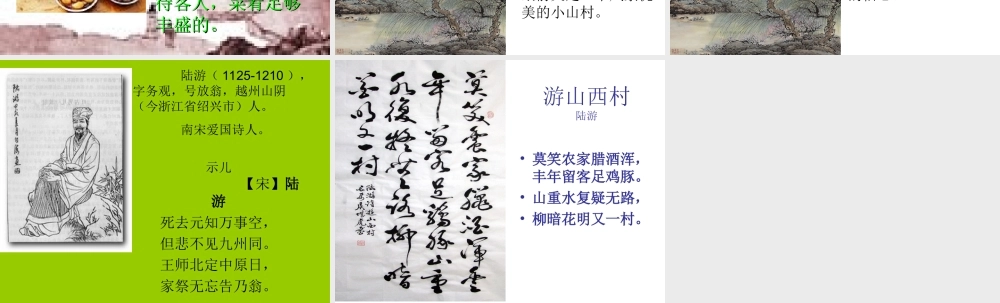 待客人，菜肴足够
丰盛的。
美的小山村。
陆游（ 1125-1210 ），
字务观，号放翁，越州山阴
（今浙江省绍兴市）人。
南宋爱国诗人。
示儿
【宋】陆
游
死去元知万事空，
但悲不见九州同。
王师北定中原日，
家祭无忘告乃翁。
莫笑农家腊酒浑丰
年留客足鸡豚山重
水复疑无路柳暗
花明又一村
游山西村
陆游
• 莫笑农家腊酒浑，
丰年留客足鸡豚。
• 山重水复疑无路，
• 柳暗花明又一村。